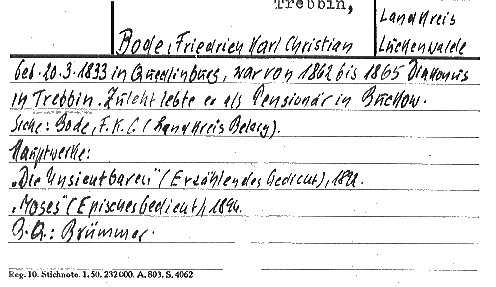 Trebbin,
Landkreis
Bode, Friedrich Karl Christian
Luckenwalde
geb. 20.3.1833 in Quedlinburg, war von 1862 bis 1865 Diakonus
in Trebbin. Zuletzt lebte er als Pensionär in Buckow.
Siehe: Bode, F. K. C. (Landkreis Belzig).
Hauptwerke:
„Die Unsichtbaren" (Erzählendes Gedicht), 1892.
„Moses" (Episches Gedicht), 1894.
B. Q.: Brümmer.
Reg. 10. Stichnote. 1. 50. 232000. A. 803. S. 4062